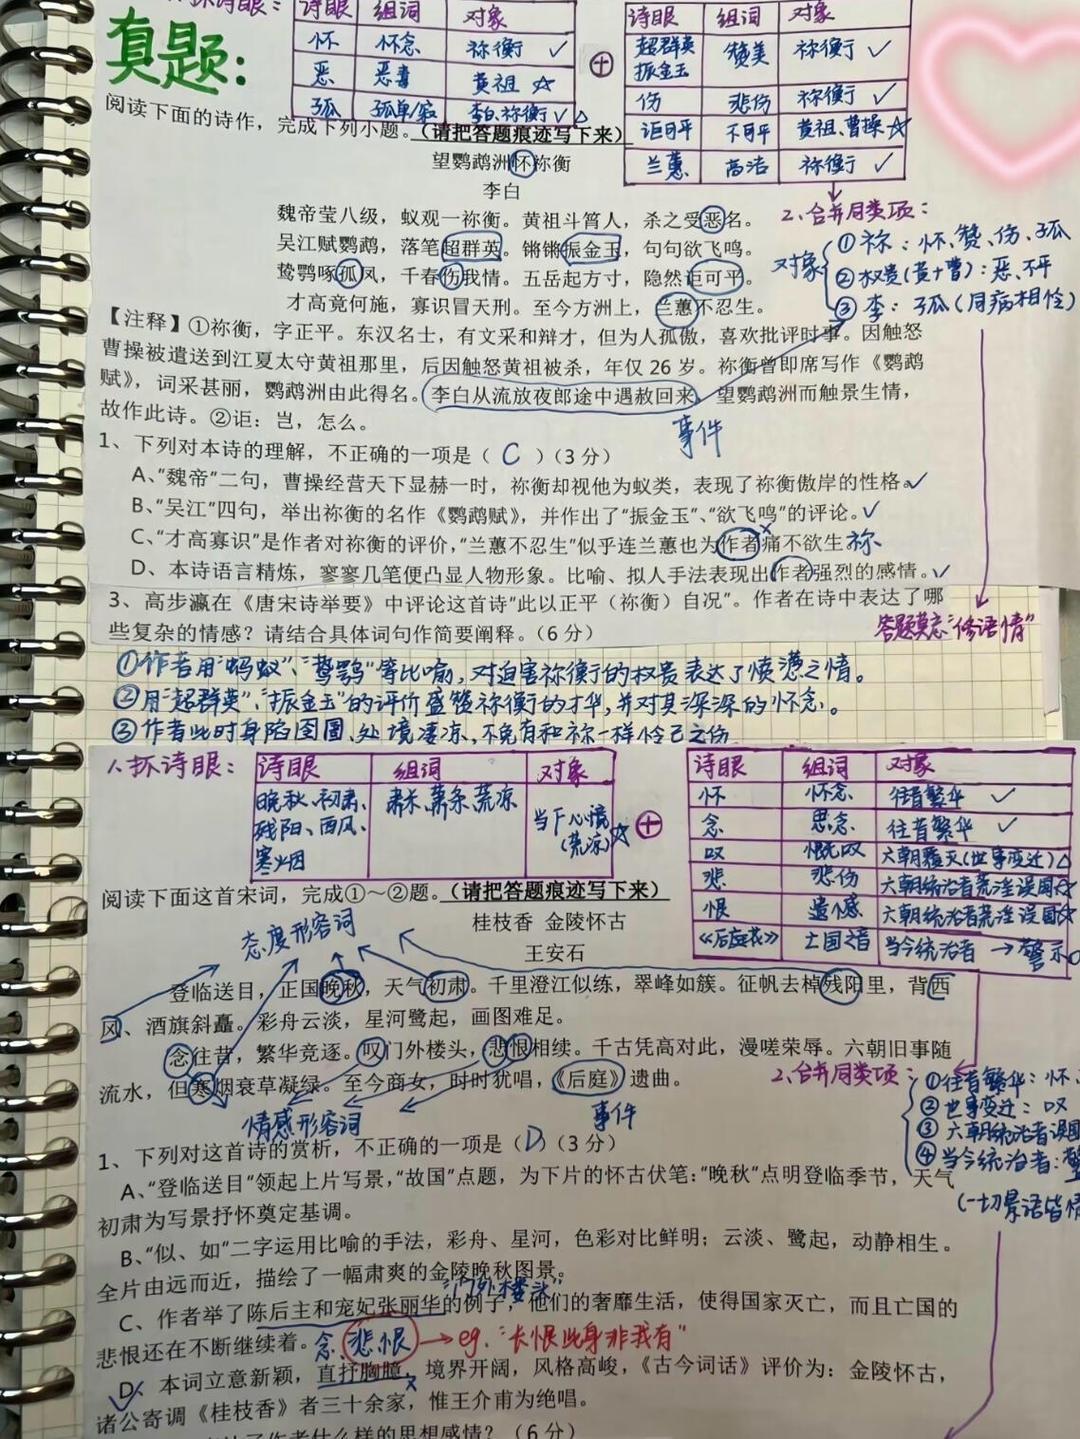 真题：
1.抓诗眼：
诗眼 组词 对象
怀 怀念 祢衡 ✓
恶 恶毒 黄祖 ☆
孤 孤单/寂 李白、祢衡 ✓ △
⊕
诗眼 组词 对象
超群英 振金玉 赞美 祢衡 ✓
伤 悲伤 祢衡 ✓
讵可平 不可平 黄祖、曹操 ☆
兰蕙 高洁 祢衡 ✓
阅读下面的诗作，完成下列小题。（请把答题痕迹写下来）
望鹦鹉洲怀祢衡
李白
魏帝莹八级，蚁观一祢衡。黄祖斗筲人，杀之受恶名。
吴江赋鹦鹉，落笔超群英。锵锵振金玉，句句欲飞鸣。
鸷鹗啄孤凤，千春伤我情。五岳起方寸，隐然讵可平。
才高竟何施，寡识冒天刑。至今方洲上，兰蕙不忍生。
2、合并同类项：
对象
①祢：怀、赞、伤、孤
②权贵(黄+曹)：恶、不平
③李：孤(同病相怜)
【注释】①祢衡，字正平。东汉名士，有文采和辩才，但为人孤傲，喜欢批评时事。因触怒
曹操被遣送到江夏太守黄祖那里，后因触怒黄祖被杀，年仅 26 岁。祢衡曾即席写作《鹦鹉
赋》，词采甚丽，鹦鹉洲由此得名。李白从流放夜郎途中遇赦回来，望鹦鹉洲而触景生情，
故作此诗。②讵：岂，怎么。
事件
1、下列对本诗的理解，不正确的一项是（ C ）(3 分)
A、“魏帝”二句，曹操经营天下显赫一时，祢衡却视他为蚁类，表现了祢衡傲岸的性格。✓
B、“吴江”四句，举出祢衡的名作《鹦鹉赋》，并作出了“振金玉”、“欲飞鸣”的评论。✓
C、“才高寡识”是作者对祢衡的评价，“兰蕙不忍生”似乎连兰蕙也为作者痛不欲生 祢
D、本诗语言精炼，寥寥几笔便凸显人物形象。比喻、拟人手法表现出作者强烈的感情。✓
3、高步瀛在《唐宋诗举要》中评论这首诗“此以正平（祢衡）自况”。作者在诗中表达了哪
些复杂的情感？请结合具体词句作简要阐释。（6 分）
答题莫忘“修语情”
①作者用“蚂蚁”、“鸷鹗”等比喻，对迫害祢衡的权贵表达了愤懑之情。
②用“超群英”、“振金玉”的评价盛赞祢衡的才华，并对其深深的怀念。
③作者此时身陷囹圄、处境凄凉，不免有和祢一样怜己之伤
1、抓诗眼：
诗眼 组词 对象
晚秋、初肃、残阳、西风、寒烟 肃杀、萧条、荒凉 当下心境(荒凉) ☆
⊕
诗眼 组词 对象
怀 怀念 往昔繁华 ✓
念 思念 往昔繁华 ✓
叹 慨叹 六朝覆灭(世事变迁) △
悲 悲伤 六朝统治者荒淫误国 ☆
恨 遗憾 六朝统治者荒淫误国 ☆
《后庭花》 亡国之音 当今统治者 → 警示 O
阅读下面这首宋词，完成①～②题。（请把答题痕迹写下来）
态度形容词
桂枝香 金陵怀古
王安石
登临送目，正国晚秋，天气初肃。千里澄江似练，翠峰如簇。征帆去棹残阳里，背西
风、酒旗斜矗。彩舟云淡，星河鹭起，画图难足。
念往昔，繁华竞逐。叹门外楼头，悲恨相续。千古凭高对此，漫嗟荣辱。六朝旧事随
流水，但寒烟衰草凝绿。至今商女，时时犹唱，《后庭》遗曲。
情感形容词
事件
2、合并同类项：
①往昔繁华：怀、
②世事变迁：叹
③六朝统治者误国
④当今统治者：警
(一切景语皆情
1、下列对这首诗的赏析，不正确的一项是（D）(3 分)
A、“登临送目”领起上片写景，“故国”点题，为下片的怀古伏笔：“晚秋”点明登临季节，天气
初肃为写景抒怀奠定基调。
B、“似、如”二字运用比喻的手法，彩舟、星河，色彩对比鲜明；云淡、鹭起，动静相生。
全片由远而近，描绘了一幅肃爽的金陵晚秋图景。
“门外楼头”
C、作者举了陈后主和宠妃张丽华的例子，他们的奢靡生活，使得国家灭亡，而且亡国的
悲恨还在不断继续着。念 悲恨 → eg. “长恨此身非我有”
D、本词立意新颖，直抒胸臆，境界开阔，风格高峻，《古今词话》评价为：金陵怀古，
诸公寄调《桂枝香》者三十余家，惟王介甫为绝唱。
达了作者什么样的思想感情？（6 分）